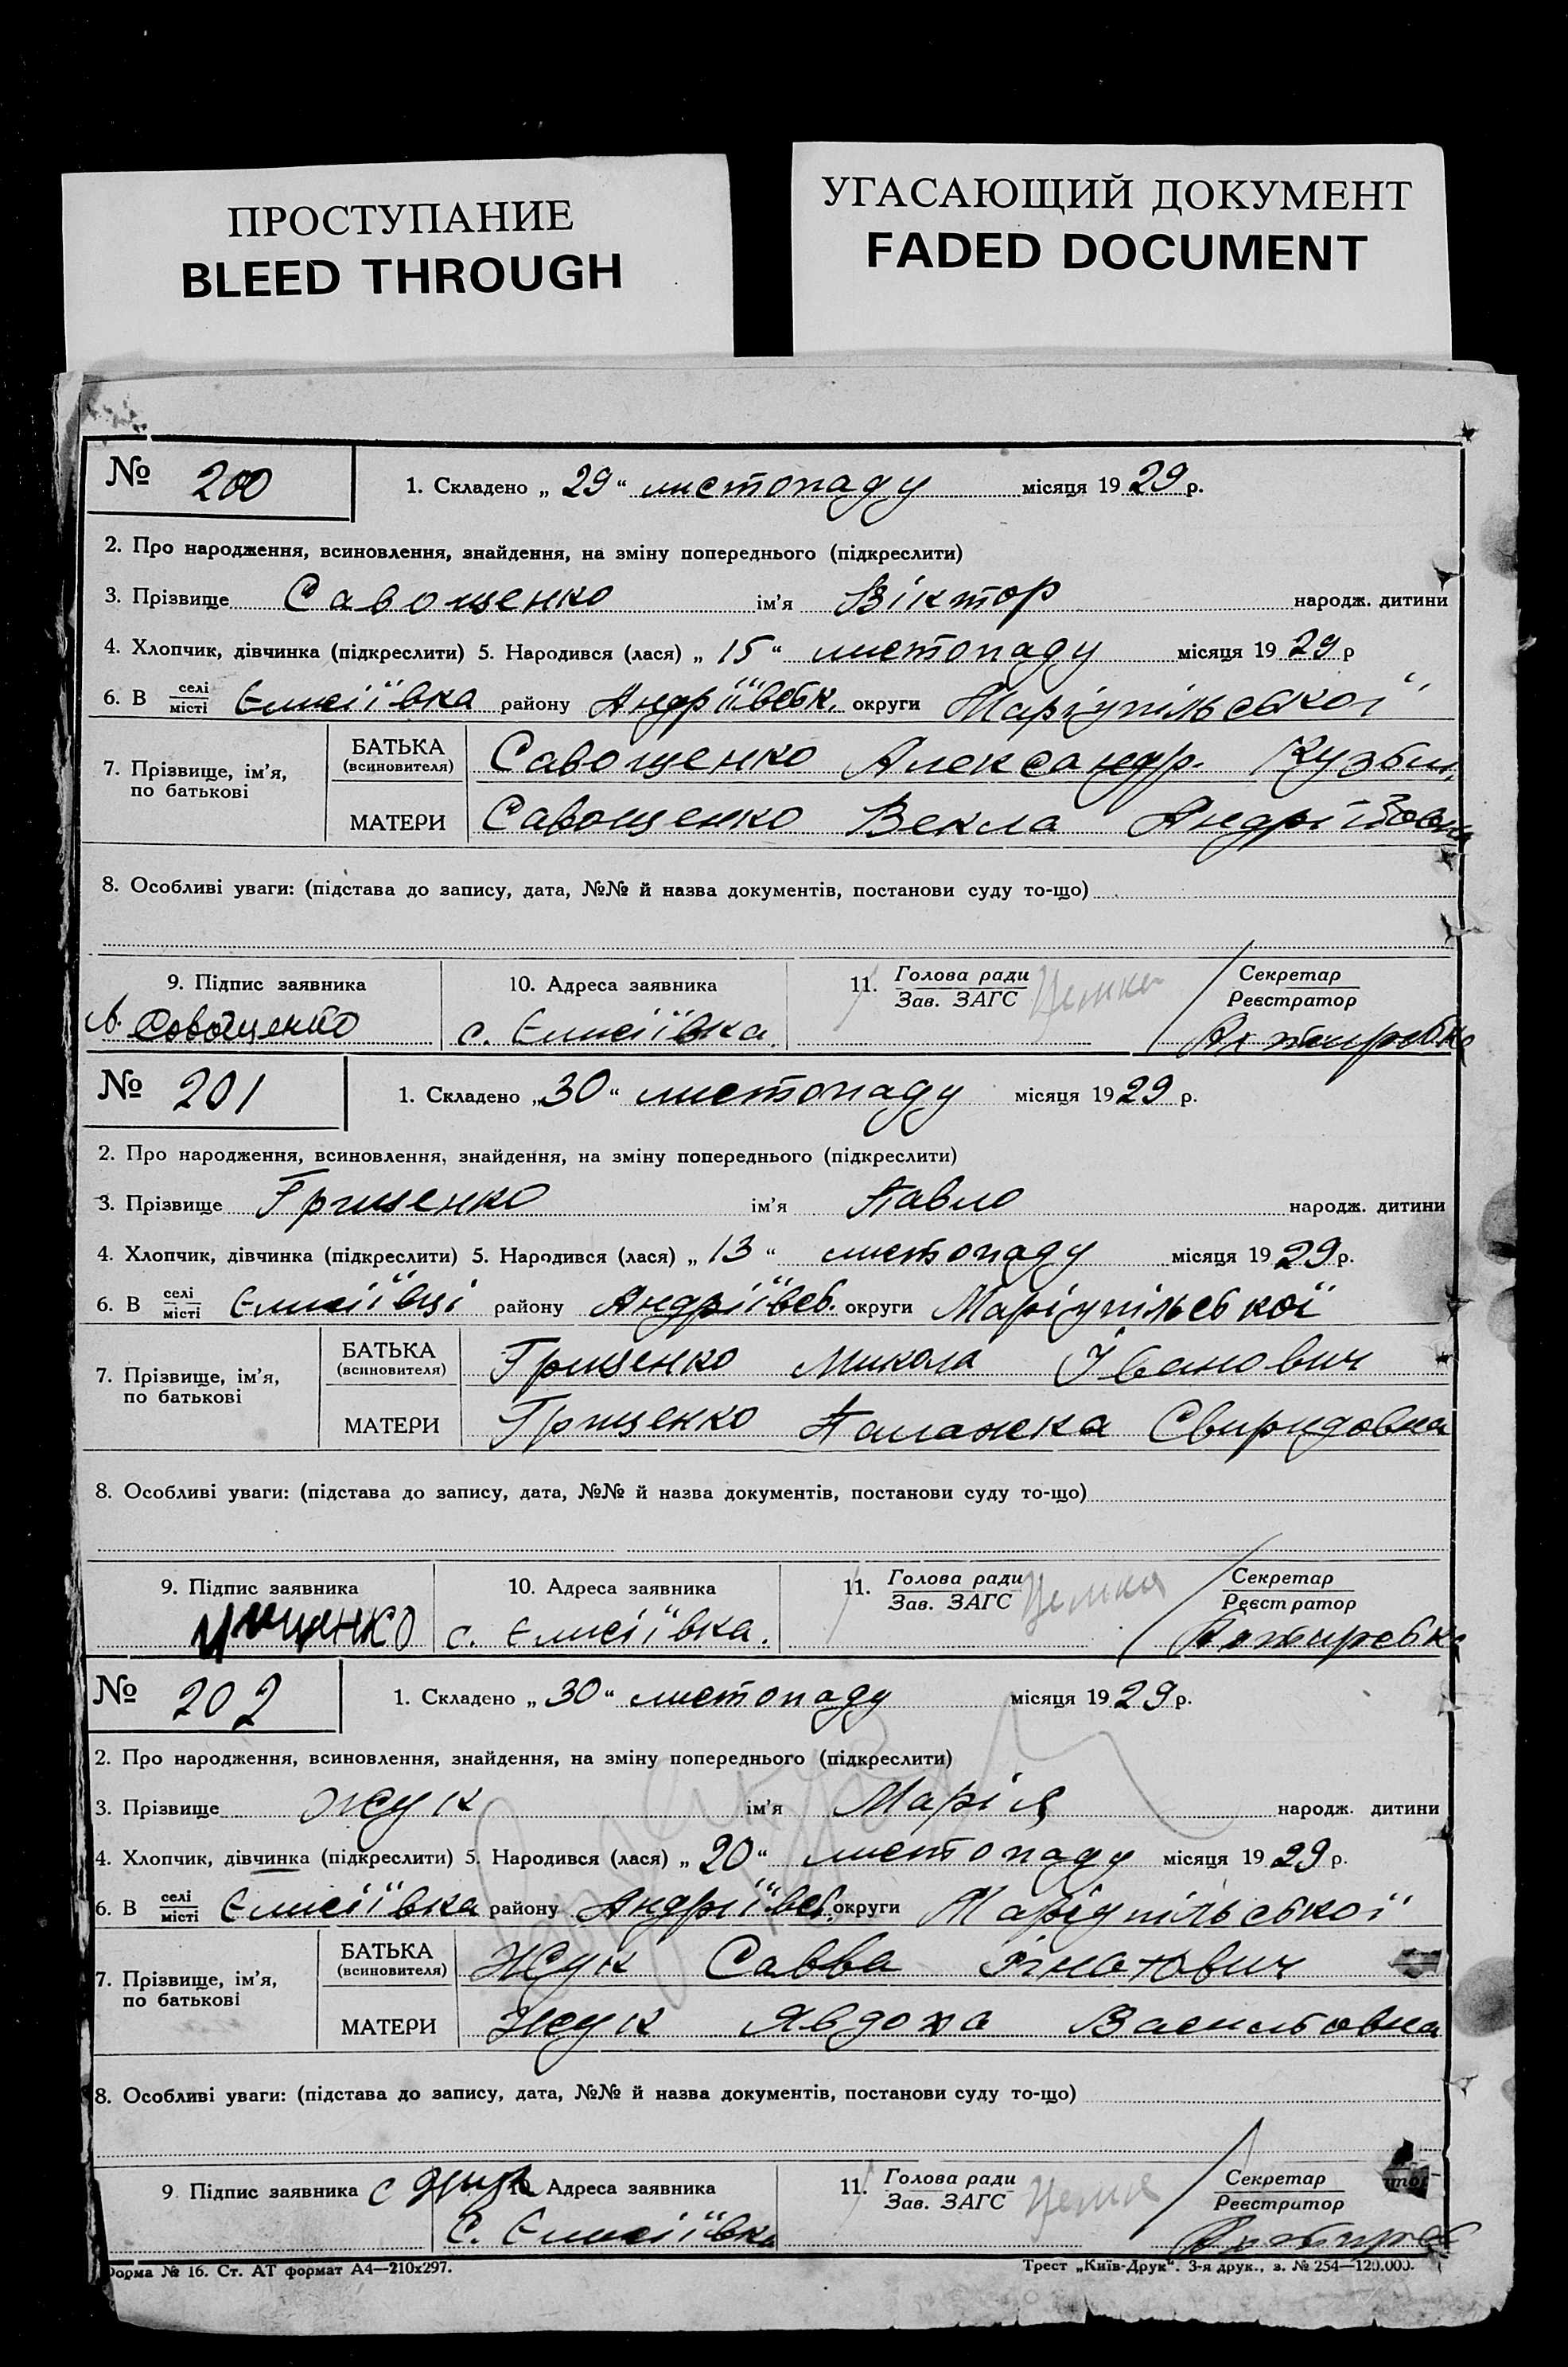 ПРОСТУПАНИЕ
BLEED THROUGH
УГАСАЮЩИЙ ДОКУМЕНТ
FADED DOCUMENT
№ 200
1. Складено „ 29 “ листопаду місяця 19 29 р.
2. Про народження, всиновлення, знайдення, на зміну попереднього (підкреслити)
3. Прізвище Савощенко ім’я Віктор народж. дитини
4. Хлопчик, дівчинка (підкреслити) 5. Народився (лася) „ 15 “ листопаду місяця 19 29 р
6. В селі місті Єлисіївка району Андріївськ. округи Маріупільської
7. Прізвище, ім’я, по батькові
БАТЬКА (всиновителя) Савощенко Александр. Кузьм.
МАТЕРИ Савощенко Векла Андріївовна
8. Особливі уваги: (підстава до запису, дата, №№ й назва документів, постанови суду то-що)
9. Підпис заявника
А. Совощенко
10. Адреса заявника
с. Єлисіївка.
11. Голова ради
Зав. ЗАГС
Секретар
Реєстратор
№ 201
1. Складено „ 30 “ листопаду місяця 19 29 р.
2. Про народження, всиновлення, знайдення, на зміну попереднього (підкреслити)
3. Прізвище Грищенко ім’я Павло народж. дитини
4. Хлопчик, дівчинка (підкреслити) 5. Народився (лася) „ 13 “ листопаду місяця 19 29 р.
6. В селі місті Єлисіївці району Андріївсь. округи Маріупільської
7. Прізвище, ім’я, по батькові
БАТЬКА (всиновителя) Грищенко Микола Іванович
МАТЕРИ Грищенко Палажка Свиридовна
8. Особливі уваги: (підстава до запису, дата, №№ й назва документів, постанови суду то-що)
9. Підпис заявника
10. Адреса заявника
с. Єлисіївка.
11. Голова ради
Зав. ЗАГС
Секретар
Реєстратор
№ 202
1. Складено „ 30 “ листопаду місяця 19 29 р.
2. Про народження, всиновлення, знайдення, на зміну попереднього (підкреслити)
3. Прізвище Жук ім’я Марія народж. дитини
4. Хлопчик, дівчинка (підкреслити) 5. Народився (лася) „ 20 “ листопаду місяця 19 29 р.
6. В селі місті Єлисіївка району Андріївсь. округи Маріупільської
7. Прізвище, ім’я, по батькові
БАТЬКА (всиновителя) Жук Савва Гнатович
МАТЕРИ Жук Явдоха Васильовна
8. Особливі уваги: (підстава до запису, дата, №№ й назва документів, постанови суду то-що)
9. Підпис заявника
Адреса заявника
с. Єлисіївка
11. Голова ради
Зав. ЗАГС
Секретар
Реєстратор
Форма № 16. Ст. АТ формат А4—210x297.
Трест „Київ-Друк“. 3-я друк., з. № 254—120.000.